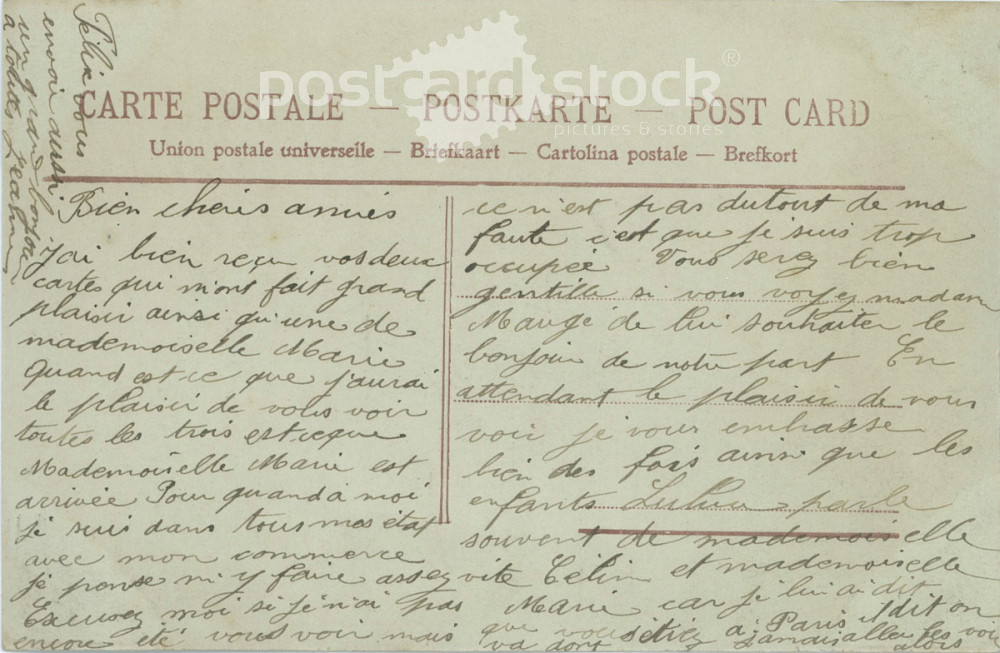 Félix vous
envoie aussi
un grand bonjour
a toutes Jeanne
postcard stock®
pictures & stories
CARTE POSTALE — POSTKARTE — POST CARD
Union postale universelle — Briefkaart — Cartolina postale — Brefkort
Bien cheris amies
J'ai bien reçu vos deux
cartes qui m'ont fait grand
plaisir ainsi qu'une de
mademoiselle Marie
Quand est-ce que j'aurai
le plaisir de vous voir
toutes les trois est ce que
Mademoiselle Marie est
arrivée Pour quand a moi
je suis dans tous mes état
avec mon commerce
je pense m'y faire assez vite
Excusez moi si je n'ai pas
encore été vous voir mais
ce n'est pas dutout de ma
faute c'est que je suis trop
occupée Vous serez bien
gentille si vous voyez madam
Maugé de lui souhaiter le
bonjour de notre part En
attendant le plaisir de vous
voir je vous embrasse
bien des fois ainsi que les
enfants Lulu parle
souvent de mademoiselle
Célin et mademoiselle
Marie car je lui ai dit
que vous étiez a Paris il dit on
va dont jamais aller les voir
alors